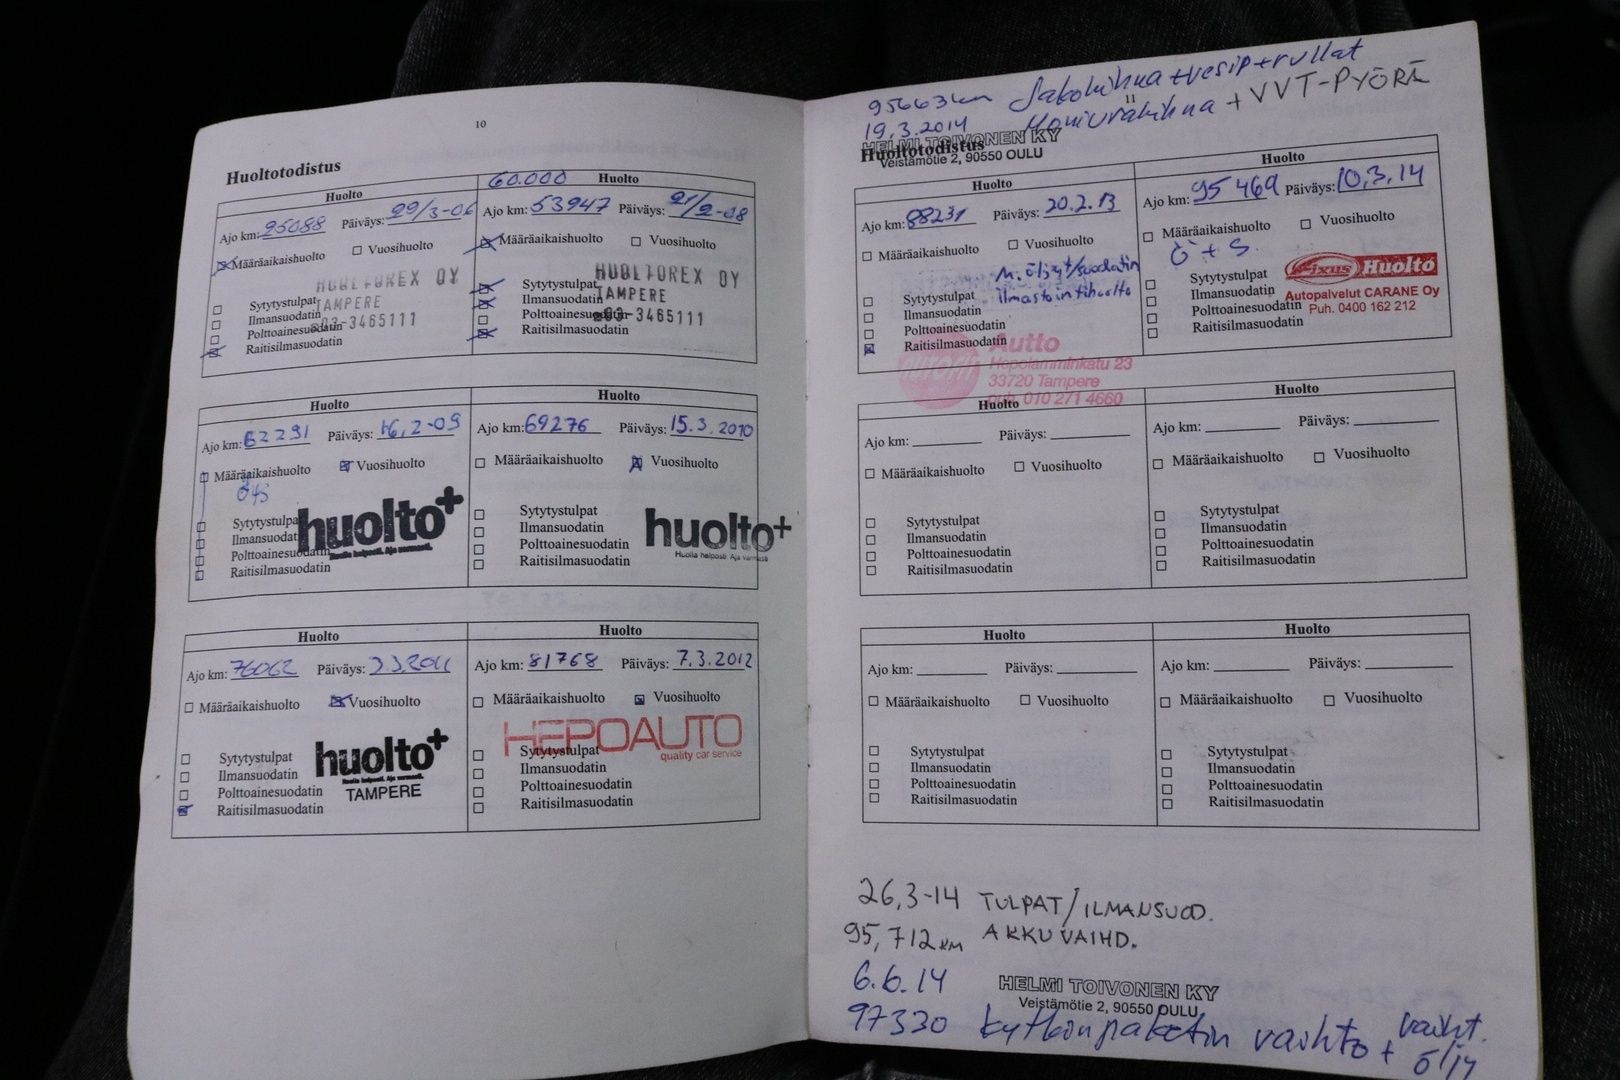 10
Huoltotodistus
Huolto
Ajo km: 25088 Päiväys: 29/3-06
Määräaikaishuolto Vuosihuolto
HUOLTOREX OY
TAMPERE
03-3465111
Sytytystulpat
Ilmansuodatin
Polttoainesuodatin
Raitisilmasuodatin
60.000 Huolto
Ajo km: 53947 Päiväys: 21/2-08
Määräaikaishuolto Vuosihuolto
HUOLTOREX OY
TAMPERE
03-3465111
Sytytystulpat
Ilmansuodatin
Polttoainesuodatin
Raitisilmasuodatin
Huolto
Ajo km: 62291 Päiväys: 16,2-09
Määräaikaishuolto Vuosihuolto
Sytytystulpat
Ilmansuodatin
Polttoainesuodatin
Raitisilmasuodatin
huolto+
Huolla helposti. Aja varmasti.
Huolto
Ajo km: 69276 Päiväys: 15.3.2010
Määräaikaishuolto Vuosihuolto
Sytytystulpat
Ilmansuodatin
Polttoainesuodatin
Raitisilmasuodatin
huolto+
Huolla helposti. Aja varmasti
Huolto
Ajo km: 76062 Päiväys: 3.3.2011
Määräaikaishuolto Vuosihuolto
Sytytystulpat
Ilmansuodatin
Polttoainesuodatin
Raitisilmasuodatin
huolto+
Huolla helposti. Aja varmasti.
TAMPERE
Huolto
Ajo km: 81768 Päiväys: 7.3.2012
Määräaikaishuolto Vuosihuolto
HEPOAUTO
quality car service
Sytytystulpat
Ilmansuodatin
Polttoainesuodatin
Raitisilmasuodatin
95663km Jakohihna + vesip + rullat
11
19.3.2014 Moniurahihna + VVT-PYÖRÄ
HELMI TOIVONEN KY
Veistämötie 2, 90550 OULU
Huoltotodistus
Huolto
Ajo km: 88231 Päiväys: 20.2.13
Määräaikaishuolto Vuosihuolto
M. öljyt/suodatin
ilmastointihuolto
Sytytystulpat
Ilmansuodatin
Polttoainesuodatin
Raitisilmasuodatin
Autto
Hepolamminkatu 23
33720 Tampere
puh. 010 271 4660
Huolto
Ajo km: 95469 Päiväys: 10,3.14
Määräaikaishuolto Vuosihuolto
Ö + S.
Sytytystulpat
Ilmansuodatin
Polttoainesuodatin
Raitisilmasuodatin
Fixus Huolto
Autopalvelut CARANE Oy
Puh. 0400 162 212
Huolto
Ajo km: Päiväys:
Määräaikaishuolto Vuosihuolto
Sytytystulpat
Ilmansuodatin
Polttoainesuodatin
Raitisilmasuodatin
Huolto
Ajo km: Päiväys:
Määräaikaishuolto Vuosihuolto
Sytytystulpat
Ilmansuodatin
Polttoainesuodatin
Raitisilmasuodatin
Huolto
Ajo km: Päiväys:
Määräaikaishuolto Vuosihuolto
Sytytystulpat
Ilmansuodatin
Polttoainesuodatin
Raitisilmasuodatin
Huolto
Ajo km: Päiväys:
Määräaikaishuolto Vuosihuolto
Sytytystulpat
Ilmansuodatin
Polttoainesuodatin
Raitisilmasuodatin
26,3-14 TULPAT/ILMANSUOD.
95,712KM AKKU VAIHD.
6.6.14 HELMI TOIVONEN KY
Veistämötie 2, 90550 OULU
97330 Kytkinpaketin vaihto + vaiht.
öljy